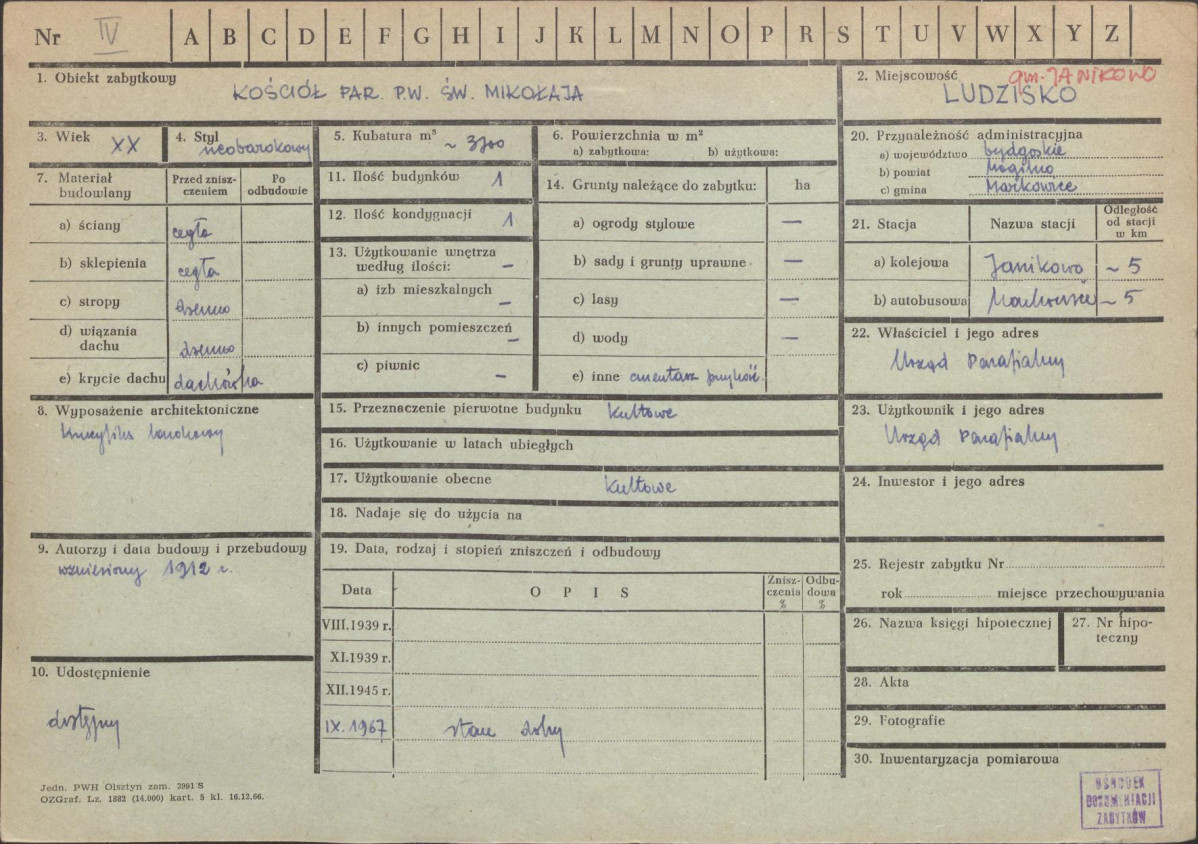 Nr IV A B C D E F G H I J K L M N O P R S T U V W X Y Z
1. Obiekt zabytkowy
KOŚCIÓŁ PAR. P.W. ŚW. MIKOŁAJA
2. Miejscowość gm. JANIKOWO
LUDZISKO
3. Wiek XX
4. Styl neobarokowy
5. Kubatura m³ ~ 3700
6. Powierzchnia w m²
a) zabytkowa: b) użytkowa:
7. Materiał budowlany
Przed znisz-
czeniem
Po
odbudowie
a) ściany cegła
b) sklepienia cegła
c) stropy drewno
d) wiązania
dachu drewno
e) krycie dachu dachówka
8. Wyposażenie architektoniczne
9. Autorzy i data budowy i przebudowy
wzniesiony 1912 r.
10. Udostępnienie
dostępny
11. Ilość budynków 1
12. Ilość kondygnacji 1
13. Użytkowanie wnętrza
według ilości: –
a) izb mieszkalnych –
b) innych pomieszczeń –
c) piwnic –
14. Grunty należące do zabytku: ha
a) ogrody stylowe –
b) sady i grunty uprawne –
c) lasy –
d) wody –
e) inne cmentarz przykość.
15. Przeznaczenie pierwotne budynku kultowe
16. Użytkowanie w latach ubiegłych
17. Użytkowanie obecne kultowe
18. Nadaje się do użycia na
19. Data, rodzaj i stopień zniszczeń i odbudowy
Data OPIS
Znisz-
czenia
%
Odbu-
dowa
%
VIII.1939 r.
XI.1939 r.
XII.1945 r.
IX.1967 stan dobry
20. Przynależność administracyjna
a) województwo bydgoskie
b) powiat Mogilno
c) gmina Markowice
21. Stacja Nazwa stacji
Odległość
od stacji
w km
a) kolejowa Janikowo ~ 5
b) autobusowa Markowice ~ 5
22. Właściciel i jego adres
Urząd Parafialny
23. Użytkownik i jego adres
Urząd Parafialny
24. Inwestor i jego adres
25. Rejestr zabytku Nr
rok miejsce przechowywania
26. Nazwa księgi hipotecznej
27. Nr hipo-
teczny
28. Akta
29. Fotografie
30. Inwentaryzacja pomiarowa
Jedn. PWH Olsztyn zam. 3991 S
OZGraf. Lz. 1882 (14.000) kart. 5 kl. 16.12.66.
OŚRODEK
DOKUMENTACJI
ZABYTKÓW